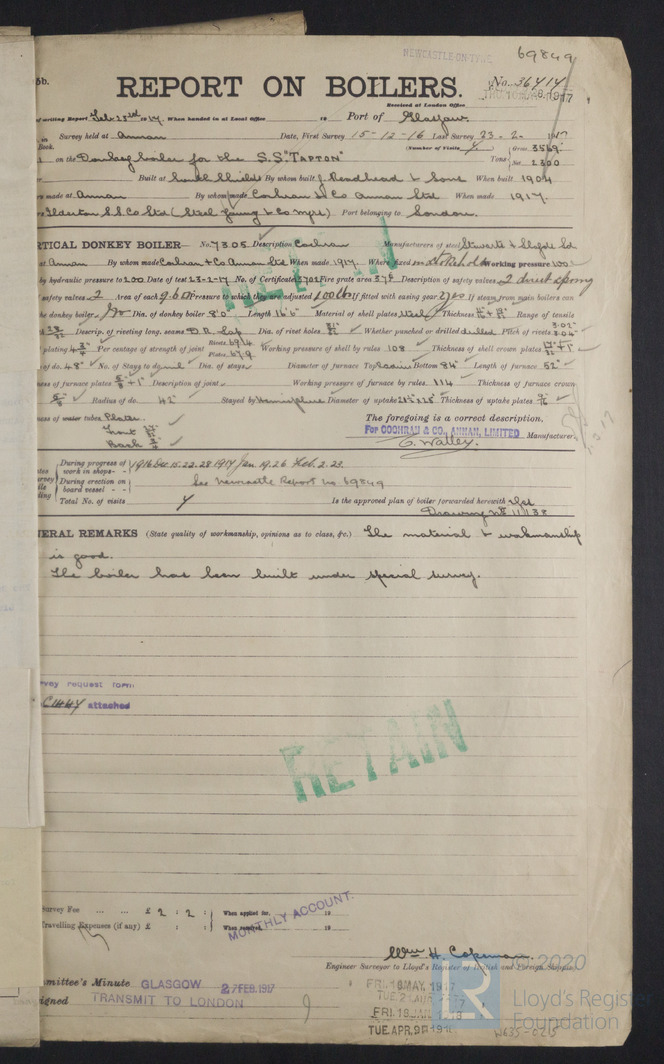 NEWCASTLE-ON-TYNE 69849
5b.
REPORT ON BOILERS.
No. 36414
Received at London Office
of writing Report Feb. 23rd 1917. When handed in at Local Office 19 Port of Glasgow.
Survey held at Annan Date, First Survey 15-12-16 Last Survey 23-2-1917
Book. (Number of Visits 4) Gross 3569
on the Donkey boiler for the S.S. "TAPTON" Tons Net 2300
Built at South Shields By whom built J. Readhead & Sons When built 1904
made at Annan By whom made Cochran & Co Annan Ltd When made 1917.
Ilderton S.S. Co Ltd (Steel Young & Co Mgrs) Port belonging to London.
RTICAL DONKEY BOILER— No. 7305 Description Cochran Manufacturers of steel Stewarts & Lloyds Ld
at Annan By whom made Cochran & Co Annan Ltd When made 1917. Where fixed Stokehold Working pressure 100
by hydraulic pressure to 200 Date of test 23-2-17 No. of Certificate 3701 Fire grate area Description of safety valves 2 direct spring
safety valves 2 Area of each Pressure to which they are adjusted 100 lb If fitted with easing gear yes If steam from main boilers can
he donkey boiler No Dia. of donkey boiler 8'0 Length 16'6" Material of shell plates Steel Thickness Range of tensile
28/32 Descrip. of riveting long. seams D.R. Lap Dia. of rivet holes Whether punched or drilled drilled Pitch of rivets 3.02" 3.04"
plating Per centage of strength of joint Rivets 69.4 Plates 67.9 Working pressure of shell by rules 108 Thickness of shell crown plates
of do. 48" No. of Stays to do. nil Dia. of stays Diameter of furnace Top Bottom 84" Length of furnace 52"
ness of furnace plates Description of joint Working pressure of furnace by rules 114 Thickness of furnace crown
Radius of do. 42" Stayed by Hemisphere Diameter of uptake Thickness of uptake plates 9/16"
ness of water tubes Plates The foregoing is a correct description,
Front For COCHRAN & CO., ANNAN, LIMITED Manufacturer.
Back C. Walley.
During progress of work in shops - - 1916 Dec. 15. 22. 28 1917 Jan. 19. 26 Feb. 2. 23.
During erection on board vessel - - See Newcastle Report No 69849
Total No. of visits 4 Is the approved plan of boiler forwarded herewith Yes
Drawing No 11138
NERAL REMARKS (State quality of workmanship, opinions as to class, &c.) The material & wakmanship
is good.
The boiler has been built under special survey.
RETAIN
rvey request form
attached
RETAIN
Survey Fee ... ... £ 2 : 2 : When applied for, 19
Travelling Expenses (if any) £ : : When received, 19
MONTHLY ACCOUNT.
Wm H. Copeman
Engineer Surveyor to Lloyd's Register of British and Foreign Shipping.
mmittee's Minute GLASGOW 27 FEB. 1917 FRI. 18 MAY. 1917
signed TRANSMIT TO LONDON
FRI. 18 JAN. 1918
TUE. APR. 9 1918
2020
LR
Lloyd's Register
Foundation
W635-0215